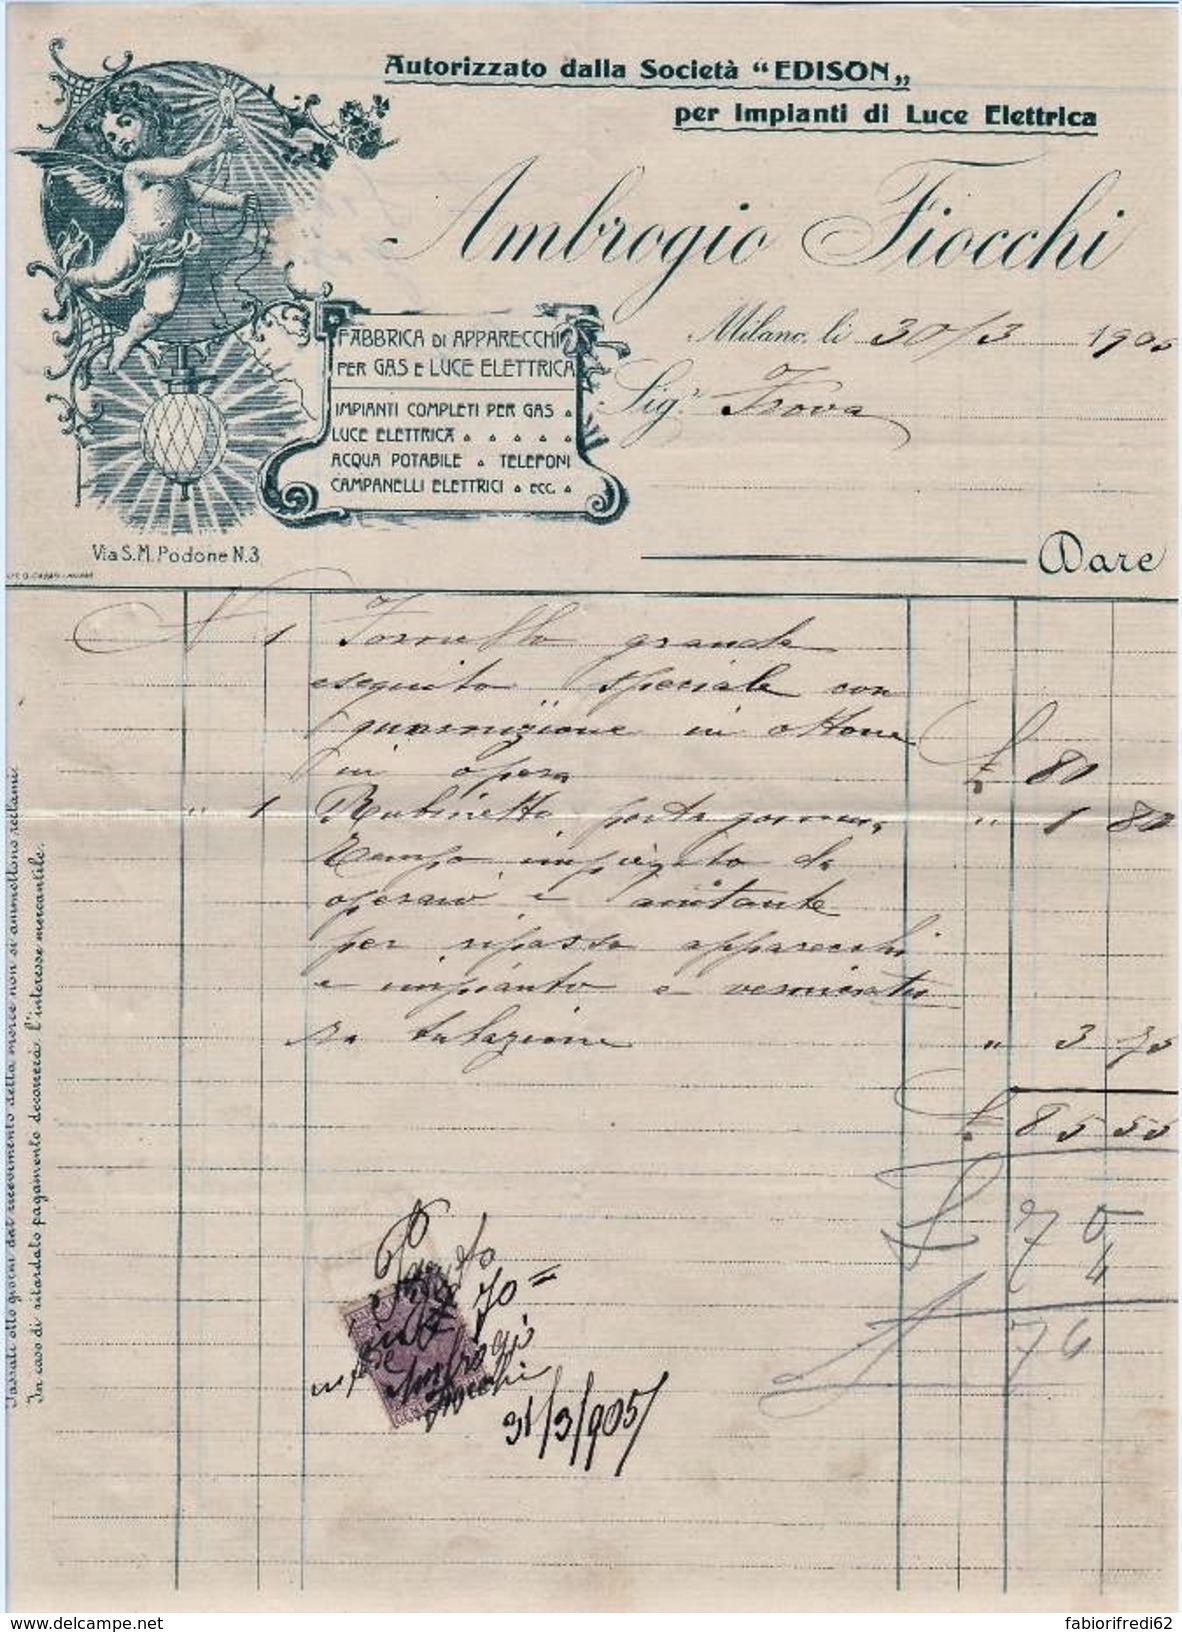 Autorizzato dalla Società "EDISON„
per Impianti di Luce Elettrica
Ambrogio Fiocchi
Milano, li 30/3 1905
Sig.r
FABBRICA DI APPARECCHI
PER GAS E LUCE ELETTRICA
IMPIANTI COMPLETI PER GAS
LUCE ELETTRICA
ACQUA POTABILE TELEFONI
CAMPANELLI ELETTRICI ECC.
Via S. M. Podone N. 3
Dare
N 1 Fornello grande
eseguito speciale con
guarnizione in ottone
in opera £ 80
" 1 Rubinetto porta gomma " 1 80
Tempo impiegato da
operaio e aiutante
per ripasso apparecchi
e impianto e
tubazione " 3 75
£ 85 55
£ 70
4
£ 74
Passati otto giorni dal ricevimento della merce non si ammettono reclami.
In caso di ritardato pagamento decorrerà l'interesse mercantile.
70 =
Ambrogio
Fiocchi
31/3/905
delcampe.net
fabiorifredi62